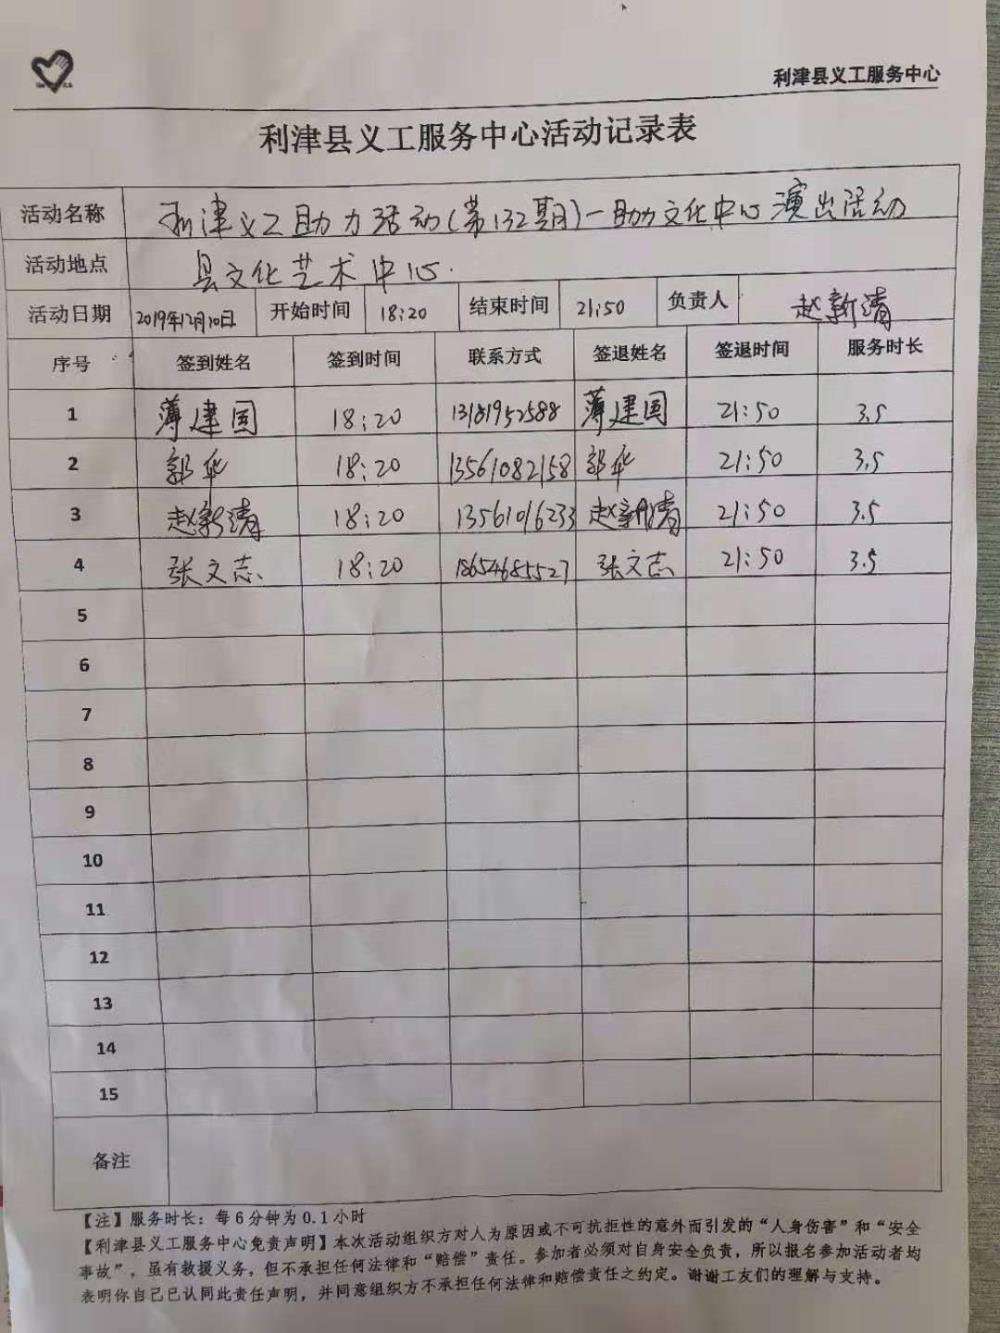 利津县义工服务中心
利津县义工服务中心活动记录表
活动名称 利津义工助力活动(第132期)一助力文化中心演出活动
活动地点 县文化艺术中心.
活动日期 2019年12月10日 开始时间 18:20 结束时间 21:50 负责人 赵新清
序号 签到姓名 签到时间 联系方式 签退姓名 签退时间 服务时长
1 薄建国 18:20 13181952588 薄建国 21:50 3.5
2 郭华 18:20 13561082158 郭华 21:50 3.5
3 赵新清 18:20 13561016233 赵新清 21:50 3.5
4 张文志 18:20 18654685527 张文志 21:50 3.5
5
6
7
8
9
10
11
12
13
14
15
备注
【注】服务时长：每6分钟为0.1小时
【利津县义工服务中心免责声明】本次活动组织方对人为原因或不可抗拒性的意外而引发的“人身伤害”和“安全
事故”，虽有救援义务，但不承担任何法律和“赔偿”责任。参加者必须对自身安全负责，所以报名参加活动者均
表明你自己已认同此责任声明，并同意组织方不承担任何法律和赔偿责任之约定。谢谢工友们的理解与支持。